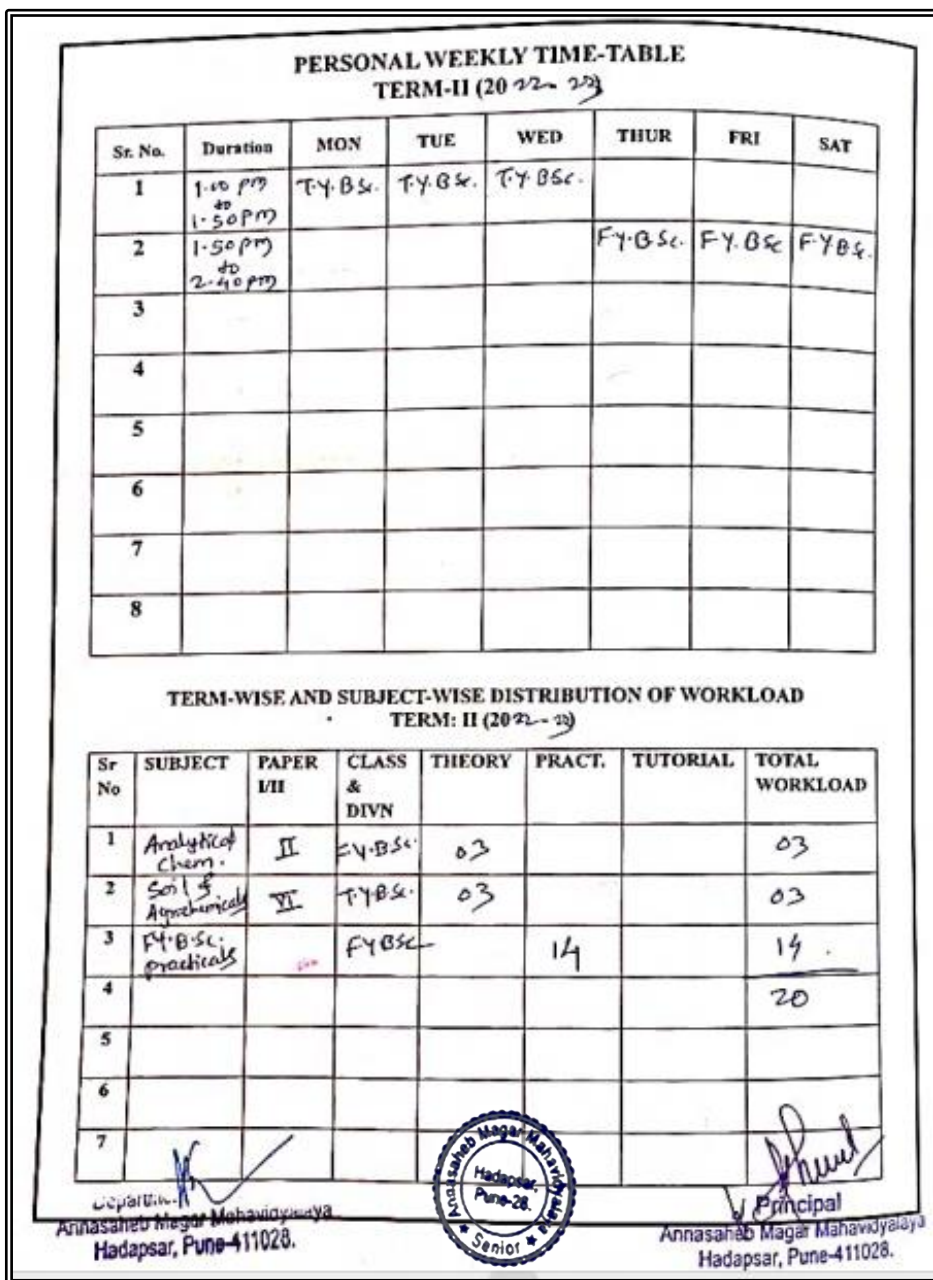 PERSONAL WEEKLY TIME-TABLE
TERM-II (2022-23)
Sr. No. Duration MON TUE WED THUR FRI SAT
1 1.00 PM to 1.50 PM T.Y.BSc. T.Y.BSc. T.Y.BSc.
2 1.50 PM to 2.40 PM F.Y.BSc. F.Y.BSc F.YBSc.
3
4
5
6
7
8
TERM-WISE AND SUBJECT-WISE DISTRIBUTION OF WORKLOAD
TERM: II (2022-23)
Sr No SUBJECT PAPER I/II CLASS & DIVN THEORY PRACT. TUTORIAL TOTAL WORKLOAD
1 Analytical Chem. II F.Y.BSc. 03 03
2 Soil & Agrochemicals VI T.Y.BSc. 03 03
3 F.Y.B.Sc. practicals FYBSc 14 14
4 20
5
6
7
Annasaheb Magar Mahavidyalaya
Hadapsar, Pune-411028.
Annasaheb Magar Mahavidyalaya
Hadapsar,
Pune-28.
Senior
Principal
Annasaheb Magar Mahavidyalaya
Hadapsar, Pune-411028.